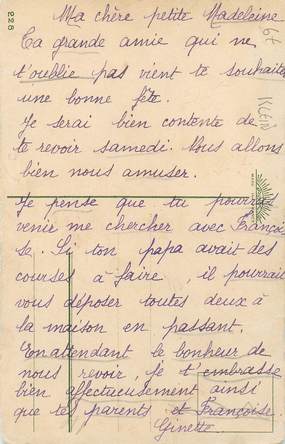 Ma chère petite Madeleine
Ta grande amie qui ne
t'oublie pas vient te souhaiter
une bonne fête.
Je serai bien contente de
te revoir samedi. Nous allons
bien nous amuser.
Je pense que tu pourras
venir me chercher avec Françoi
se. Si ton papa avait des
courses à faire, il pourrait
vous déposer toutes deux à
la maison en passant.
En attendant le bonheur de
nous revoir, je t'embrasse
bien affectueusement ainsi
que tes parents et Françoise.
Ginette
228
67
KLEIN